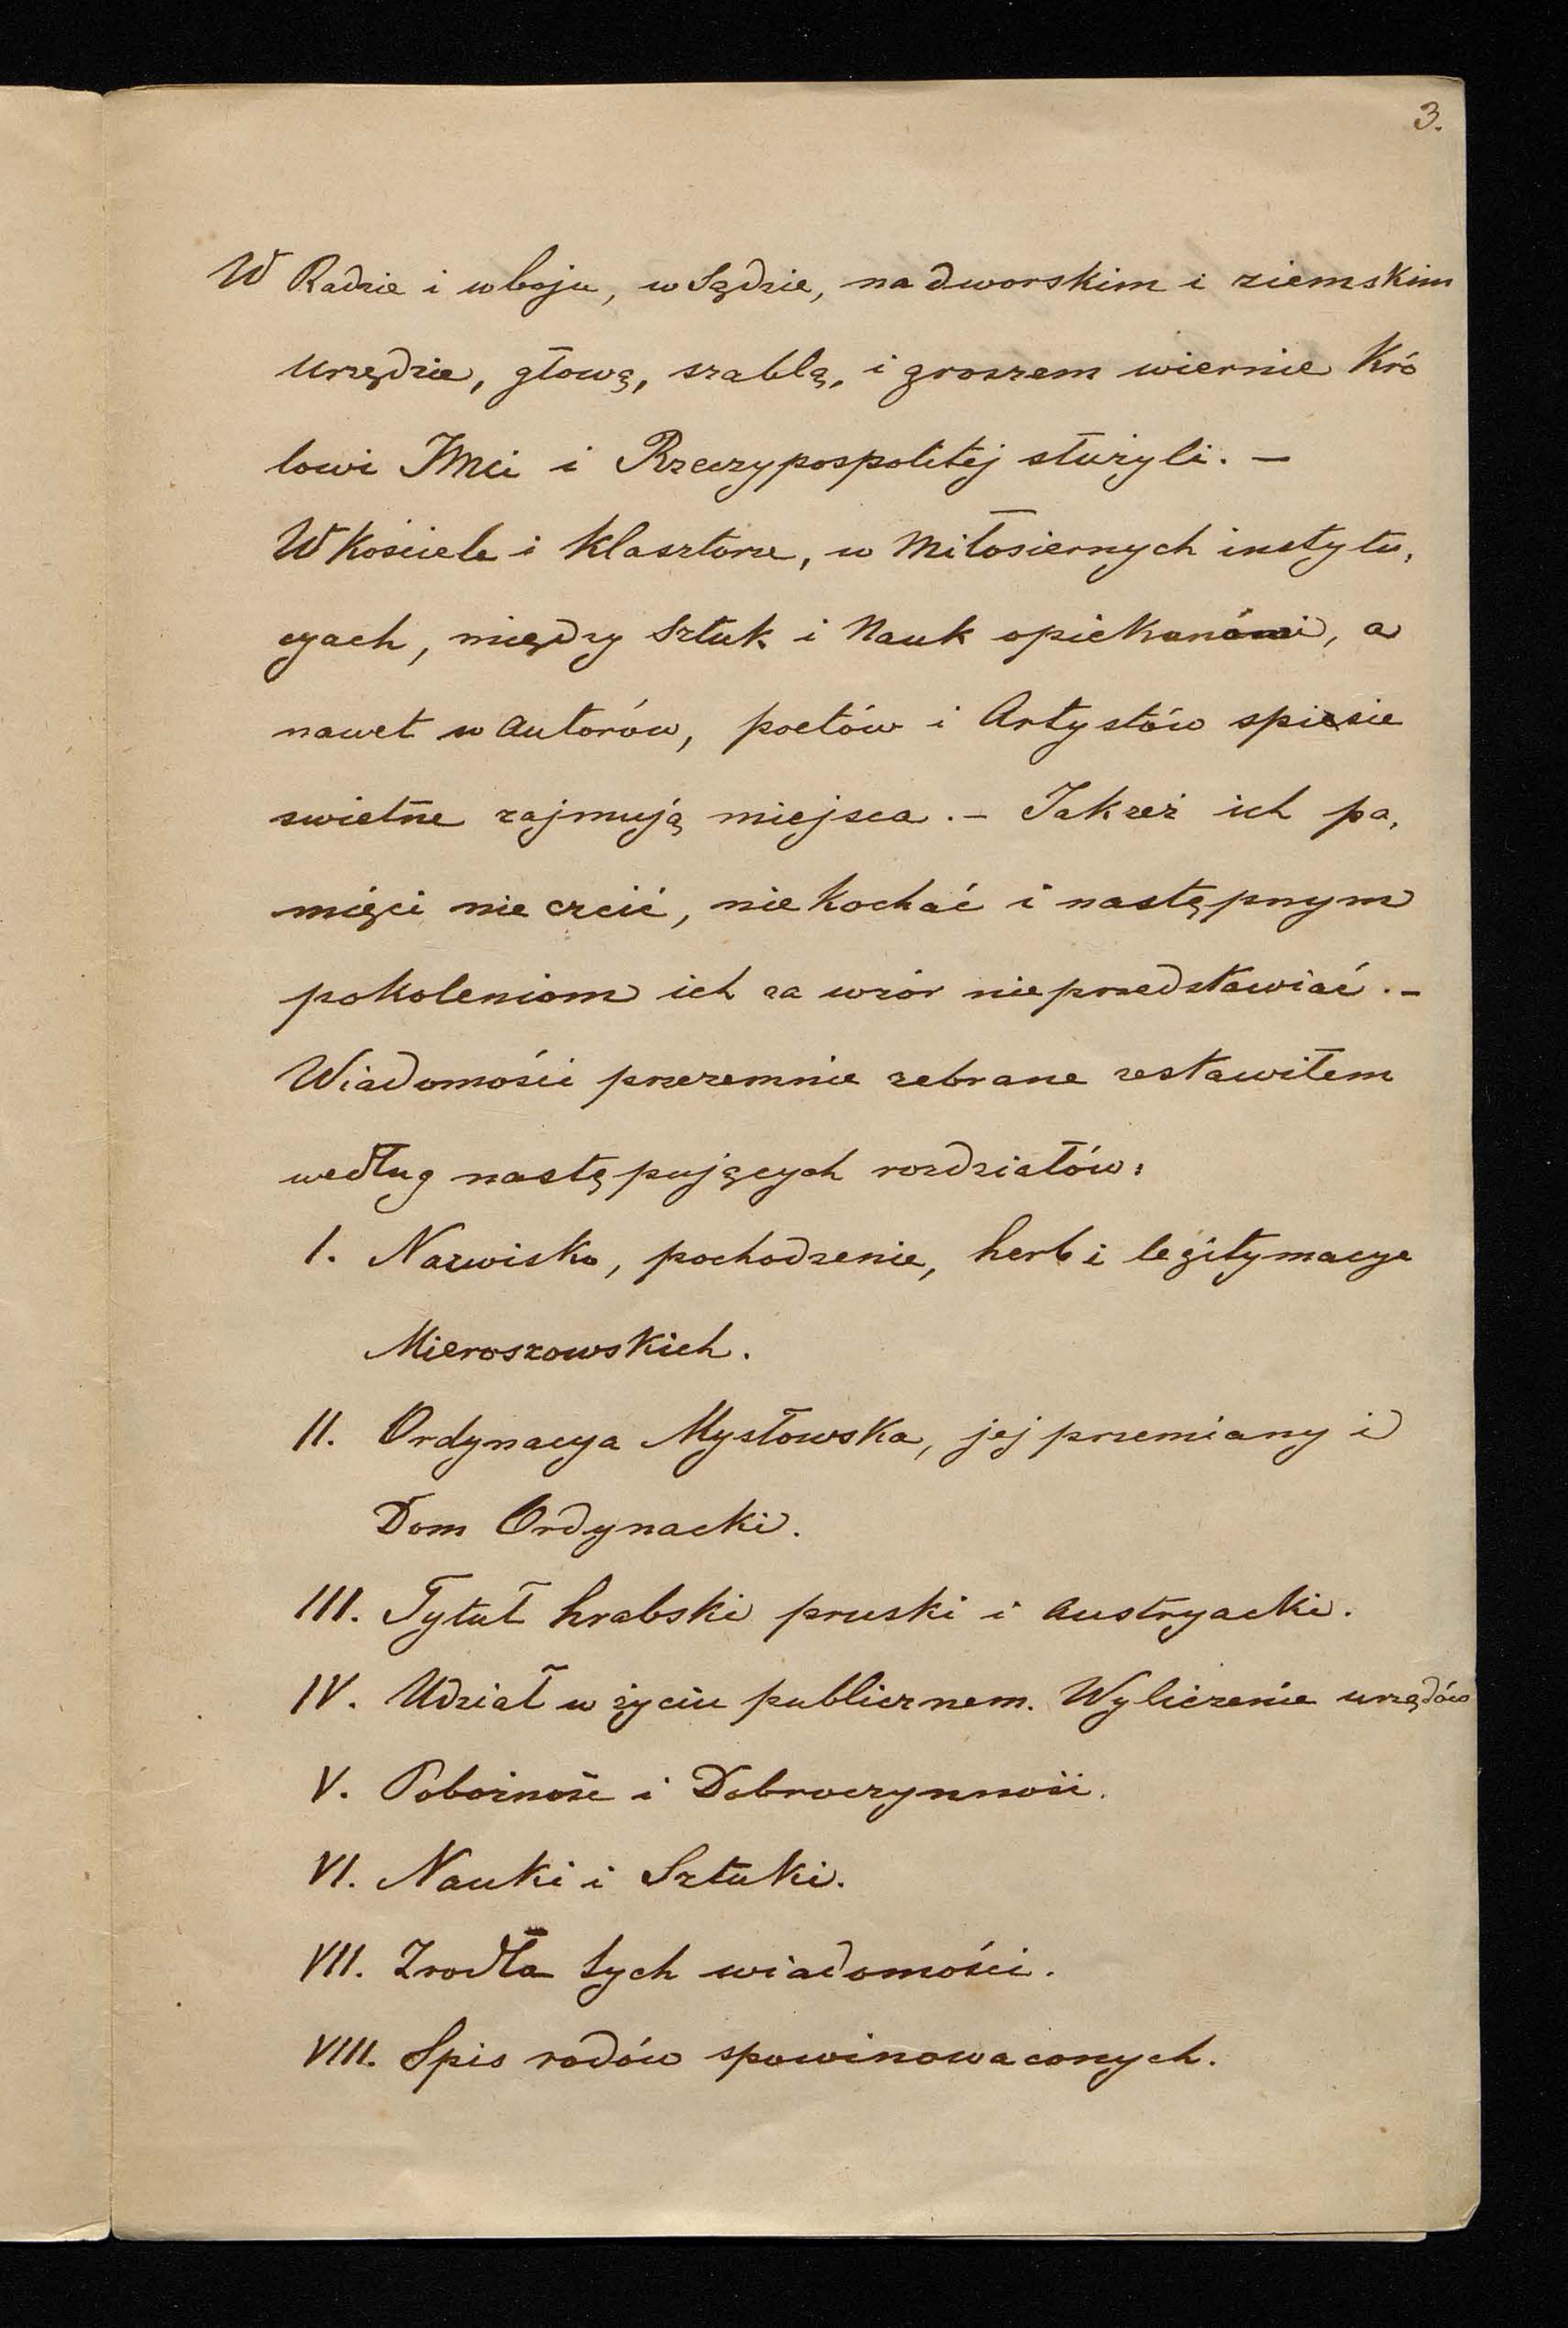 3.
W Radzie i w boju, w Sądzie, na dworskim i ziemskim
urzędzie, głową, szablą, i groszem wiernie Kró
lowi JMci i Rzeczypospolitéj służyli. –
W Kościele i klasztorze, w Miłosiernych instytu,
cyach, między Sztuk i Nauk opiekunámi, a
nawet w autorów, poetów i Artystów spisie
swietne zajmują miejsca. – Jakżeż ich pa,
mięci nie czcić, nie kochać i następnym
pokoleniom ich za wzór nieprzedstawiać. –
Wiadomości przezemnie zebrane zestawiłem
według następujących rozdziałów:
I. Nazwisko, pochodzenie, herb i legitymacye
Mieroszowskich.
II. Ordynacya Mysłowska, jej przemiany i
Dom Ordynacki.
III. Tytuł hrabski pruski i austryacki.
IV. Udział w życiu publicznem. Wyliczenie urzędów
V. Pobożność i Dobroczynność.
VI. Nauki i Sztuki.
VII. Zrodła tych wiadomości.
VIII. Spis rodów spowinowaconych.